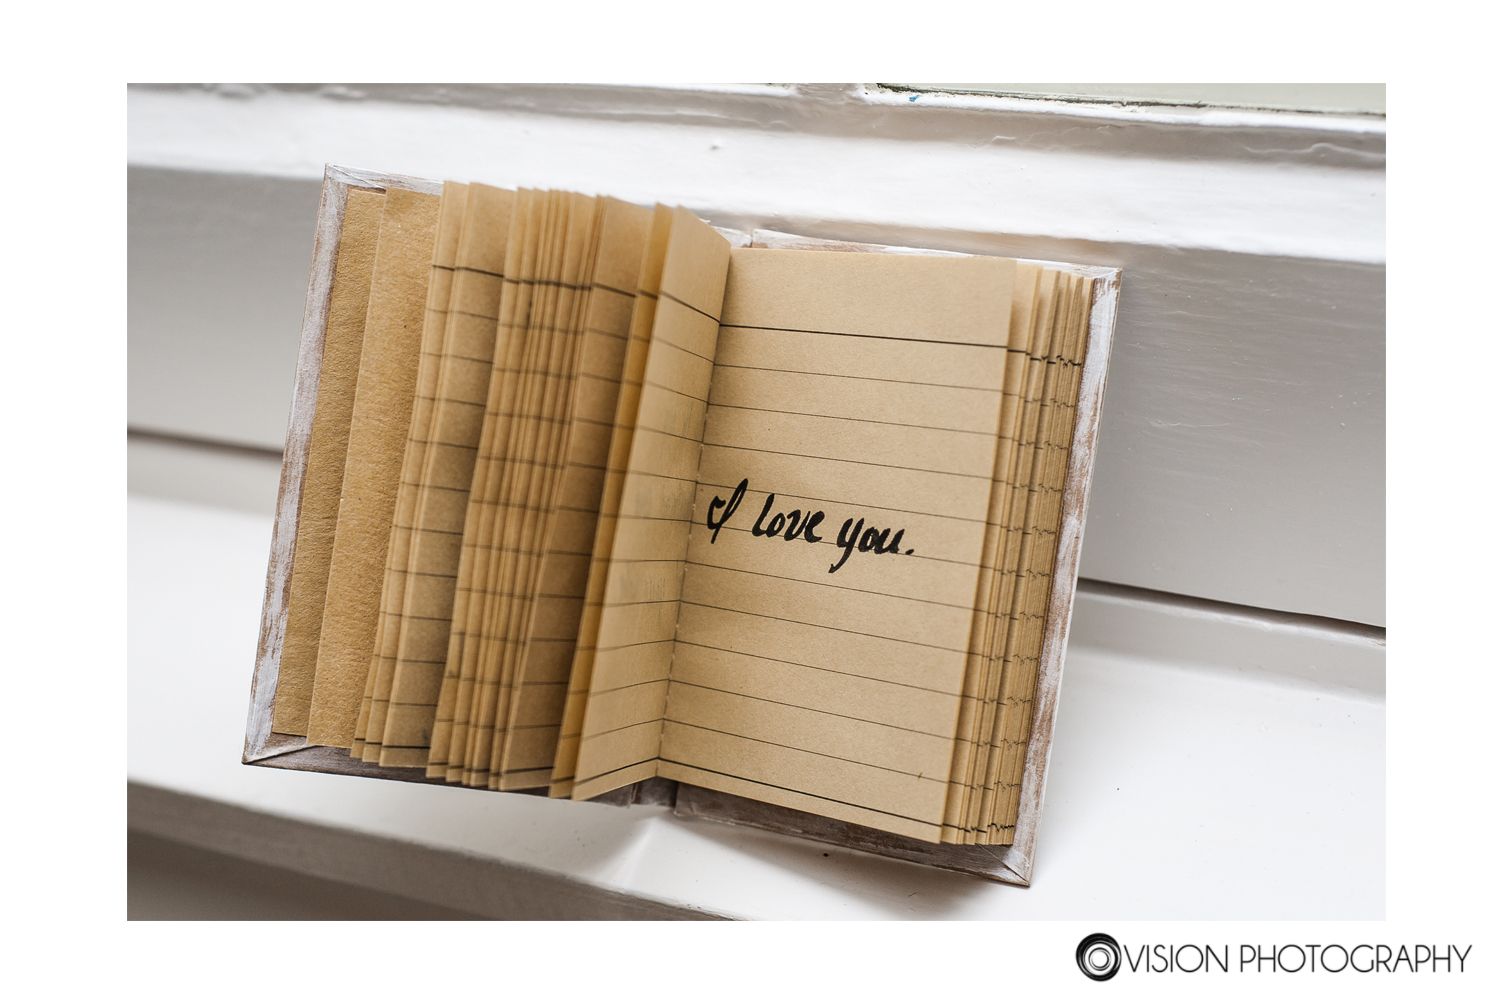 I love you.
VISION PHOTOGRAPHY